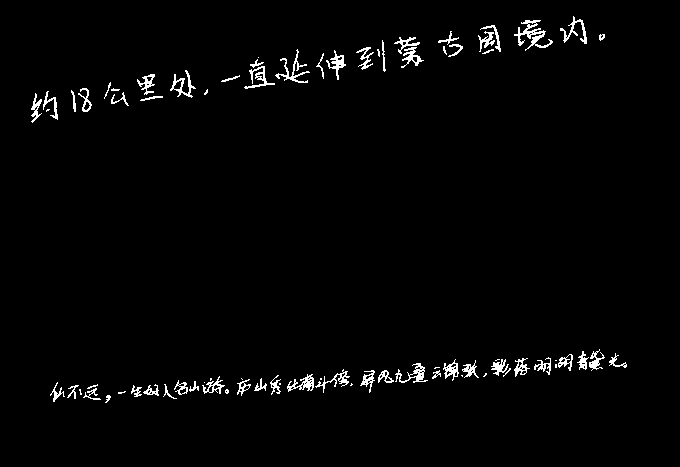 约18公里处，一直延伸到蒙古国境内。
仙不远，一生好入名山游。庐山秀出南斗傍，屏风九叠云锦张，影落明湖青黛光。